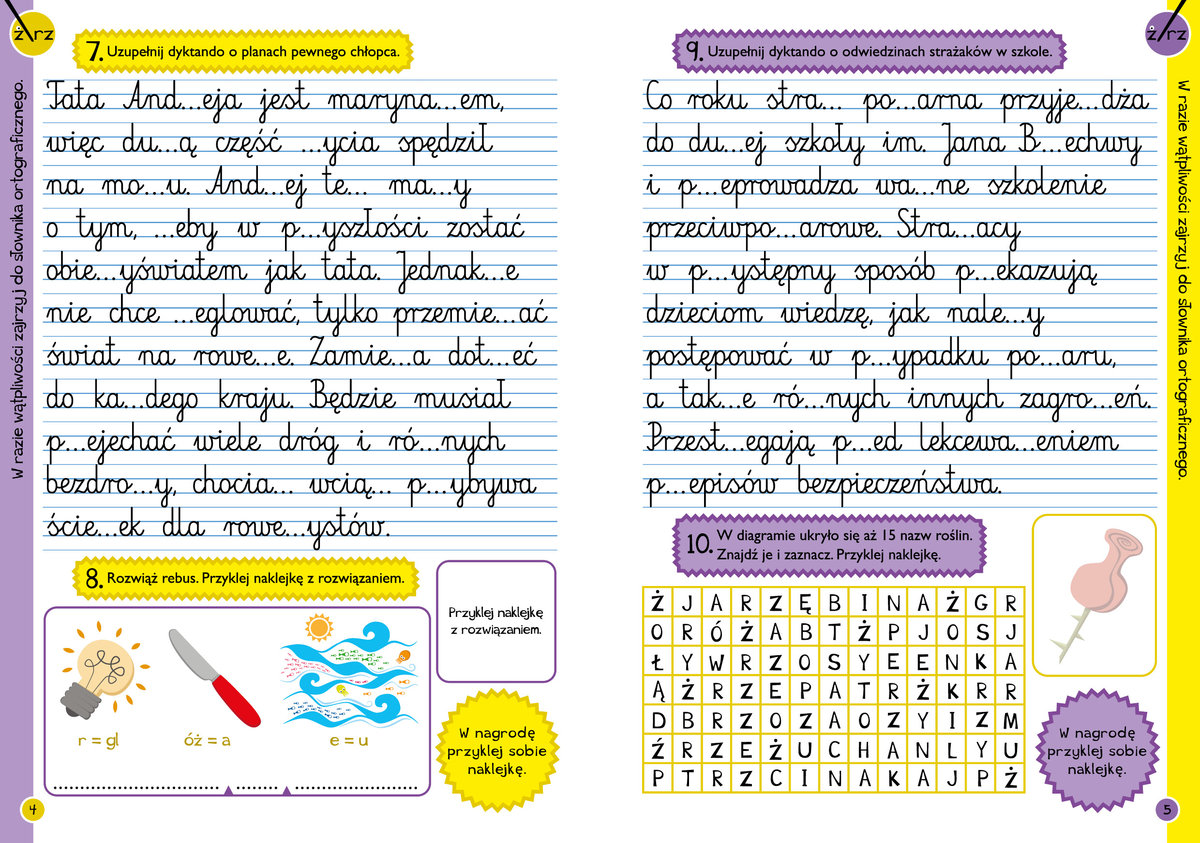 ż/rz
W razie wątpliwości zajrzyj do słownika ortograficznego.
7. Uzupełnij dyktando o planach pewnego chłopca.
Tata And...eja jest maryna...em,
więc du...ą część ...ycia spędził
na mo...u. And...ej te... ma...y
o tym, ...eby w p...yszłości zostać
obie...yświatem jak tata. Jednak...e
nie chce ...eglować, tylko przemie...ać
świat na rowe...e. Zamie...a dot...eć
do ka...dego kraju. Będzie musiał
p...ejechać wiele dróg i ró...nych
bezdro...y, chocia... wcią... p...ybywa
ście...ek dla rowe...ystów.
8. Rozwiąż rebus. Przyklej naklejkę z rozwiązaniem.
r = gl
óż = a
e = u
Przyklej naklejkę
z rozwiązaniem.
W nagrodę
przyklej sobie
naklejkę.
4
ż/rz
W razie wątpliwości zajrzyj do słownika ortograficznego.
9. Uzupełnij dyktando o odwiedzinach strażaków w szkole.
Co roku stra... po...arna przyje...dża
do du...ej szkoły im. Jana B...echwy
i p...eprowadza wa...ne szkolenie
przeciwpo...arowe. Stra...acy
w p...ystępny sposób p...ekazują
dzieciom wiedzę, jak nale...y
postępować w p...ypadku po...aru,
a tak...e ró...nych innych zagro...eń.
Przest...egają p...ed lekcewa...eniem
p...episów bezpieczeństwa.
10. W diagramie ukryło się aż 15 nazw roślin.
Znajdź je i zaznacz. Przyklej naklejkę.
Ż J A R Z Ę B I N A Ż G R
O R Ó Ż A B T Ż P J O S J
Ł Y W R Z O S Y E E N K A
Ą Ż R Z E P A T R Ż K R R
D B R Z O Z A O Z Y I Z M
Ź R Z E Ż U C H A N L Y U
P T R Z C I N A K A J P Ż
W nagrodę
przyklej sobie
naklejkę.
5